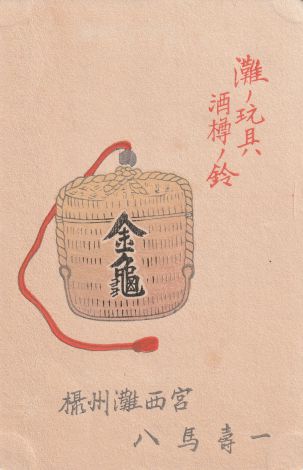 灘ノ玩具
酒樽ノ鈴
金龜
摂州灘西宮
八馬壽一